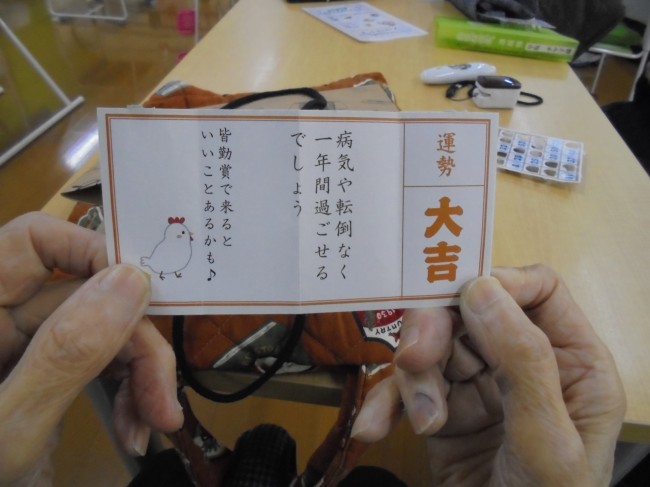 運勢
大吉
病気や転倒なく
一年間過ごせる
でしょう
皆勤賞で来ると
いいことあるかも♪